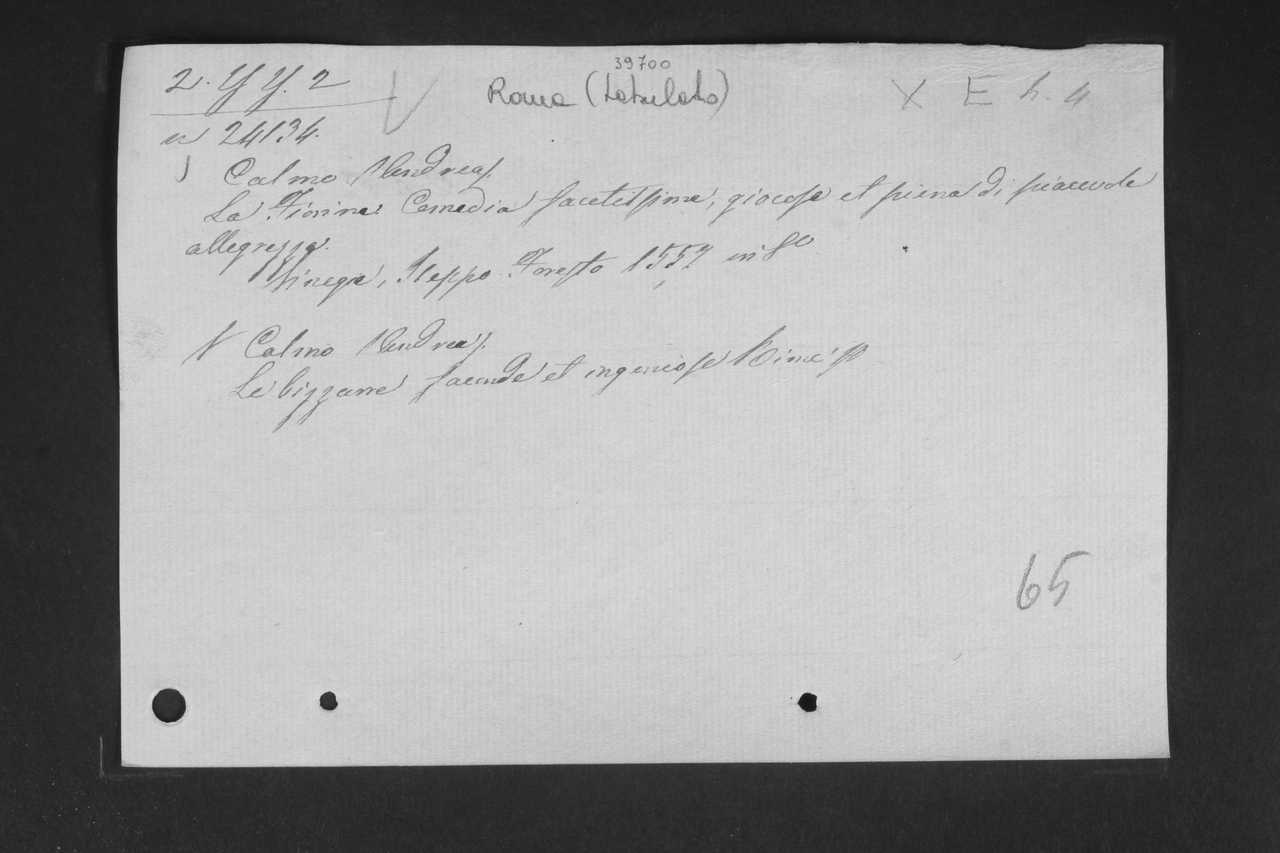 39700
2. Y Y. 2
Roma (tabulato)
X E h. 4
n 24134.
Calmo Andrea
La Fiorina Comedia facetissima, giocosa et piena di piacevole
allegrezza.
Vinegia, Steppo Foresto 1557 in 8º
Calmo Andrea
Le bizzarre facunde et ingeniose Rime
65